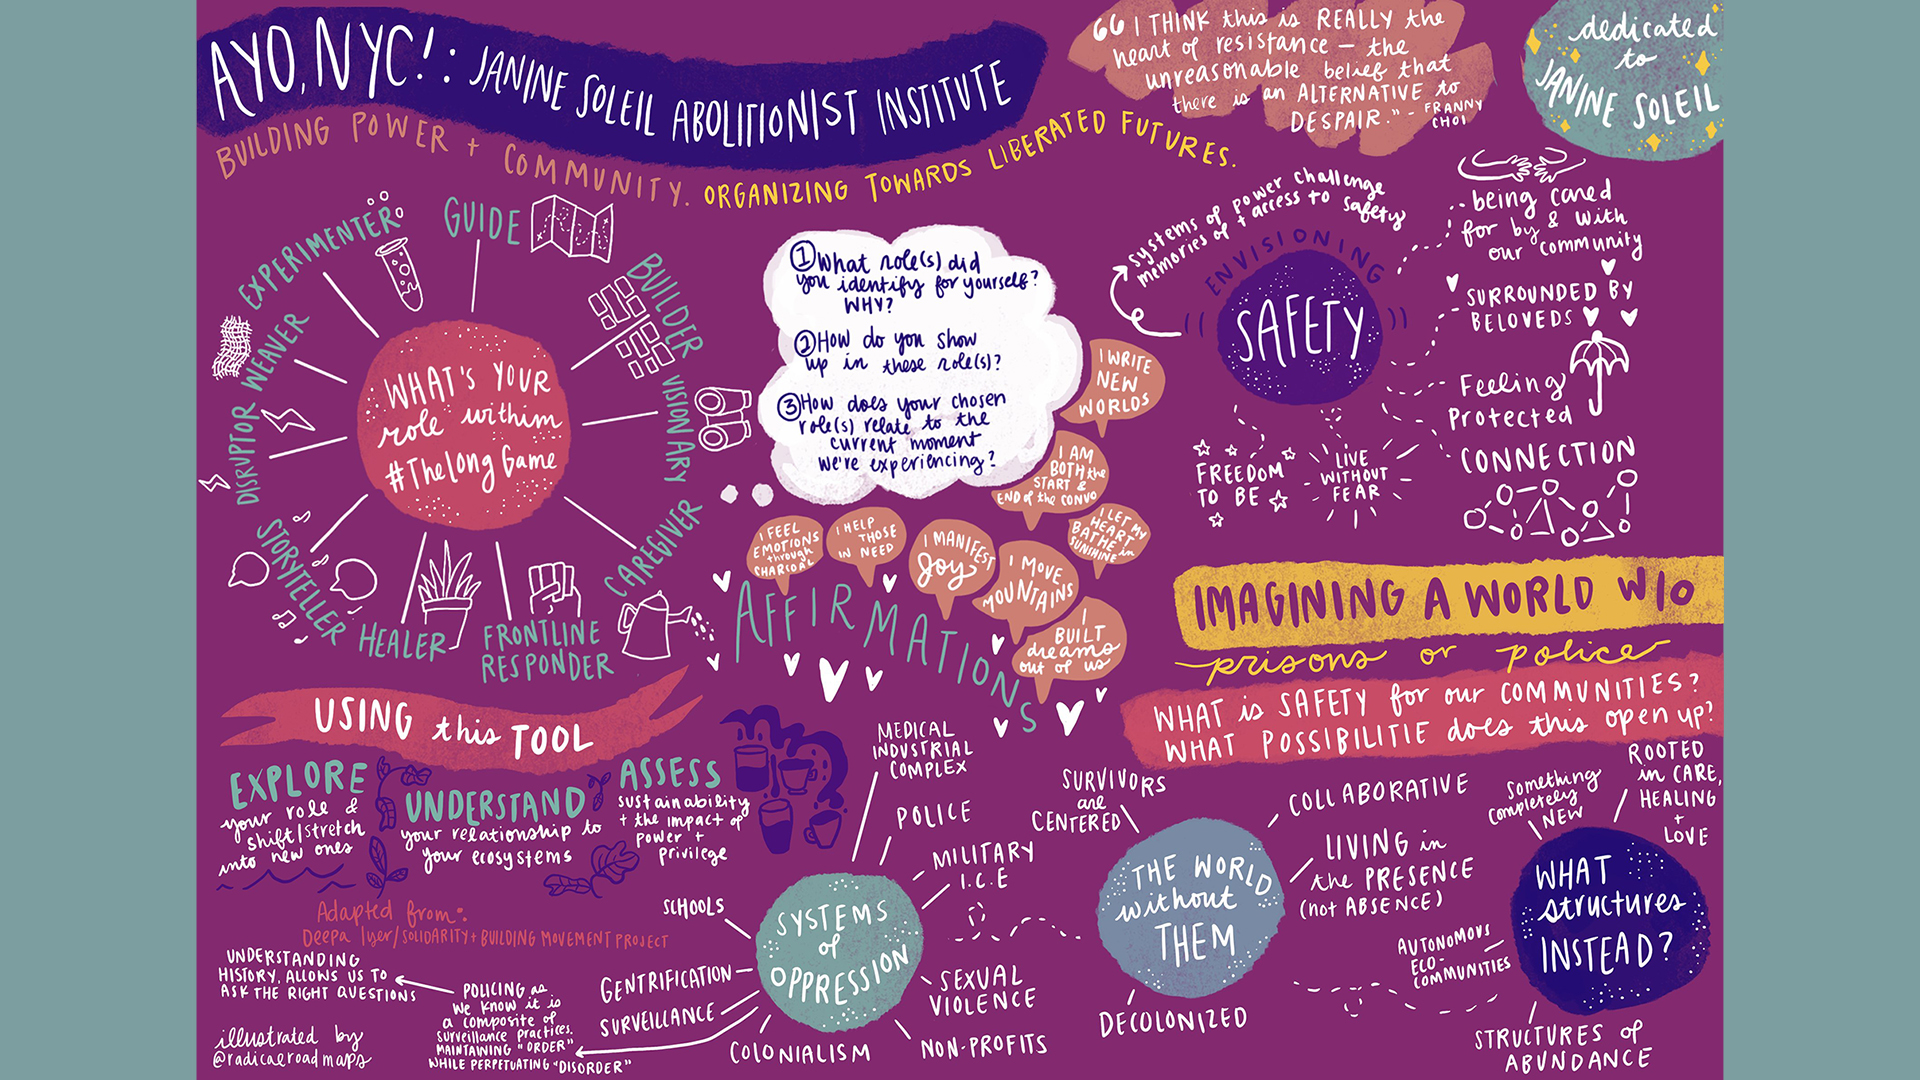 AYO, NYC! : JANINE SOLEIL ABOLITIONIST INSTITUTE
BUILDING POWER + COMMUNITY. ORGANIZING TOWARDS LIBERATED FUTURES.
“I THINK this is REALLY the
heart of resistance — the
unreasonable belief that
there is an ALTERNATIVE to
DESPAIR." - FRANNY
CHOI
dedicated
to
JANINE SOLEIL
WHAT'S YOUR
role within
#TheLongGame
GUIDE
BUILDER
VISIONARY
CAREGIVER
FRONTLINE
RESPONDER
HEALER
STORYTELLER
DISRUPTOR
WEAVER
EXPERIMENTER
① What role(s) did
you identify for yourself?
WHY?
② How do you show
up in these role(s)?
③ How does your chosen
role(s) relate to the
current moment
we're experiencing?
I WRITE
NEW
WORLDS
I AM
BOTH the
START &
END of the CONVO
I LET MY
HEART
BATHE in
SUNSHINE
I FEEL
EMOTIONS
through
CHARCOAL
I HELP
THOSE
IN NEED
I MANIFEST
Joy
I MOVE
MOUNTAINS
I
BUILT
dreams
out of us
AFFIRMATIONS
systems of power challenge
memories of + access to safety
ENVISIONING
SAFETY
being cared
for by & with
our community
SURROUNDED BY
BELOVEDS
Feeling
Protected
CONNECTION
LIVE
WITHOUT
FEAR
FREEDOM
TO BE
IMAGINING A WORLD W/O
prisons or police
WHAT is SAFETY for our COMMUNITIES?
WHAT POSSIBILITIE does this open up?
USING this TOOL
EXPLORE
your role &
shift/stretch
into new ones
UNDERSTAND
your relationship to
your ecosystems
ASSESS
sustainability
+ the impact of
power +
privilege
Adapted from:
Deepa Iyer/SOLIDARITY + BUILDING MOVEMENT PROJECT
UNDERSTANDING
HISTORY, ALLOWS US TO
ASK THE RIGHT QUESTIONS
POLICING as
we know it is
a composite of
surveillance practices.
MAINTAINING "ORDER"
WHILE PERPETUATING "DISORDER"
illustrated by
@radicalroadmaps
SYSTEMS
of
OPPRESSION
MEDICAL
INDUSTRIAL
COMPLEX
POLICE
MILITARY
I.C.E
SEXUAL
VIOLENCE
NON-PROFITS
COLONIALISM
SURVEILLANCE
GENTRIFICATION
SCHOOLS
THE WORLD
without
THEM
SURVIVORS
are
CENTERED
COLLABORATIVE
LIVING in
the PRESENCE
(not ABSENCE)
DECOLONIZED
WHAT
structures
INSTEAD?
Something
completely
NEW
ROOTED
in CARE,
HEALING
+
LOVE
AUTONOMOUS
ECO-
COMMUNITIES
STRUCTURES of
ABUNDANCE